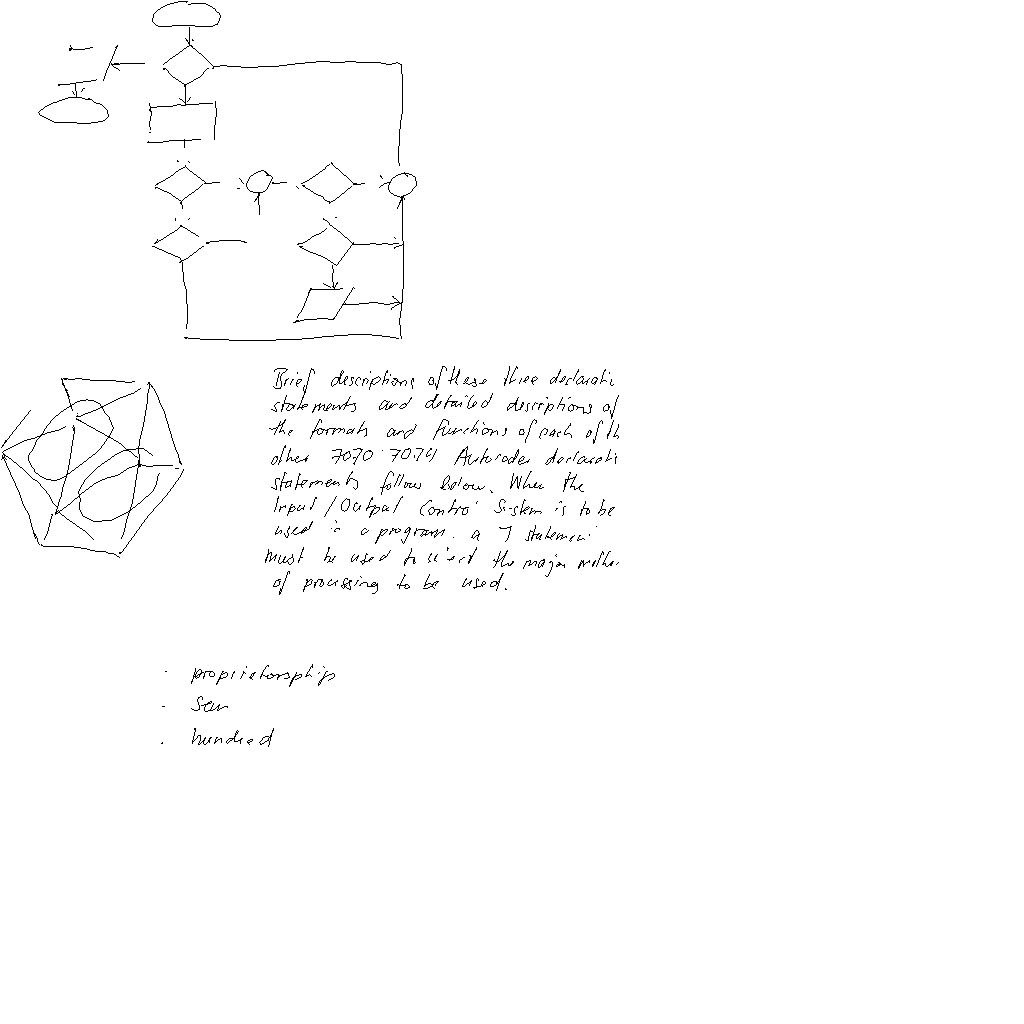 Brief descriptions of these three declarati
statements and detailed descriptions of
the formats and functions of each of th
other 7070 7074 Autocoder declarati
statements follow below. When the
Input/Output Control System is to be
used in a program. a statemen
must be used to the major
of processing to be used.
- proprietorship
-
- hundred